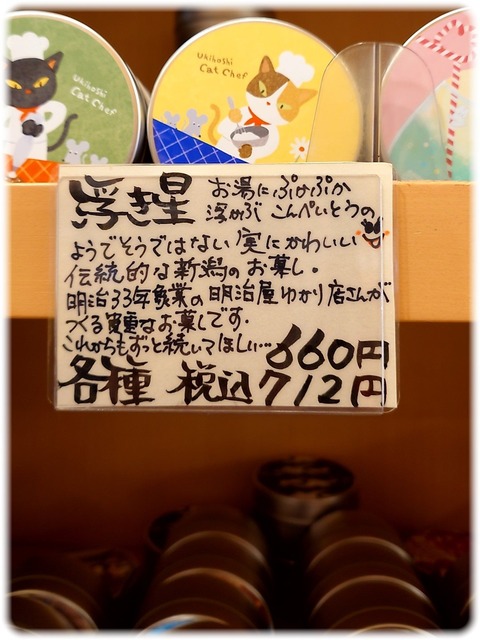 Ukihoshi
Cat Chef
Ukihoshi
Cat Chef
浮き星
お湯にぷかぷか
浮かぶ こんぺいとうの
ようでそうではない 実にかわいい
伝統的な新潟のお菓し。
明治33年創業の明治屋ゆかり店さんが
つくる貴重なお菓しです。
これからもずっと続いてほしい…
660円
各種 税込712円